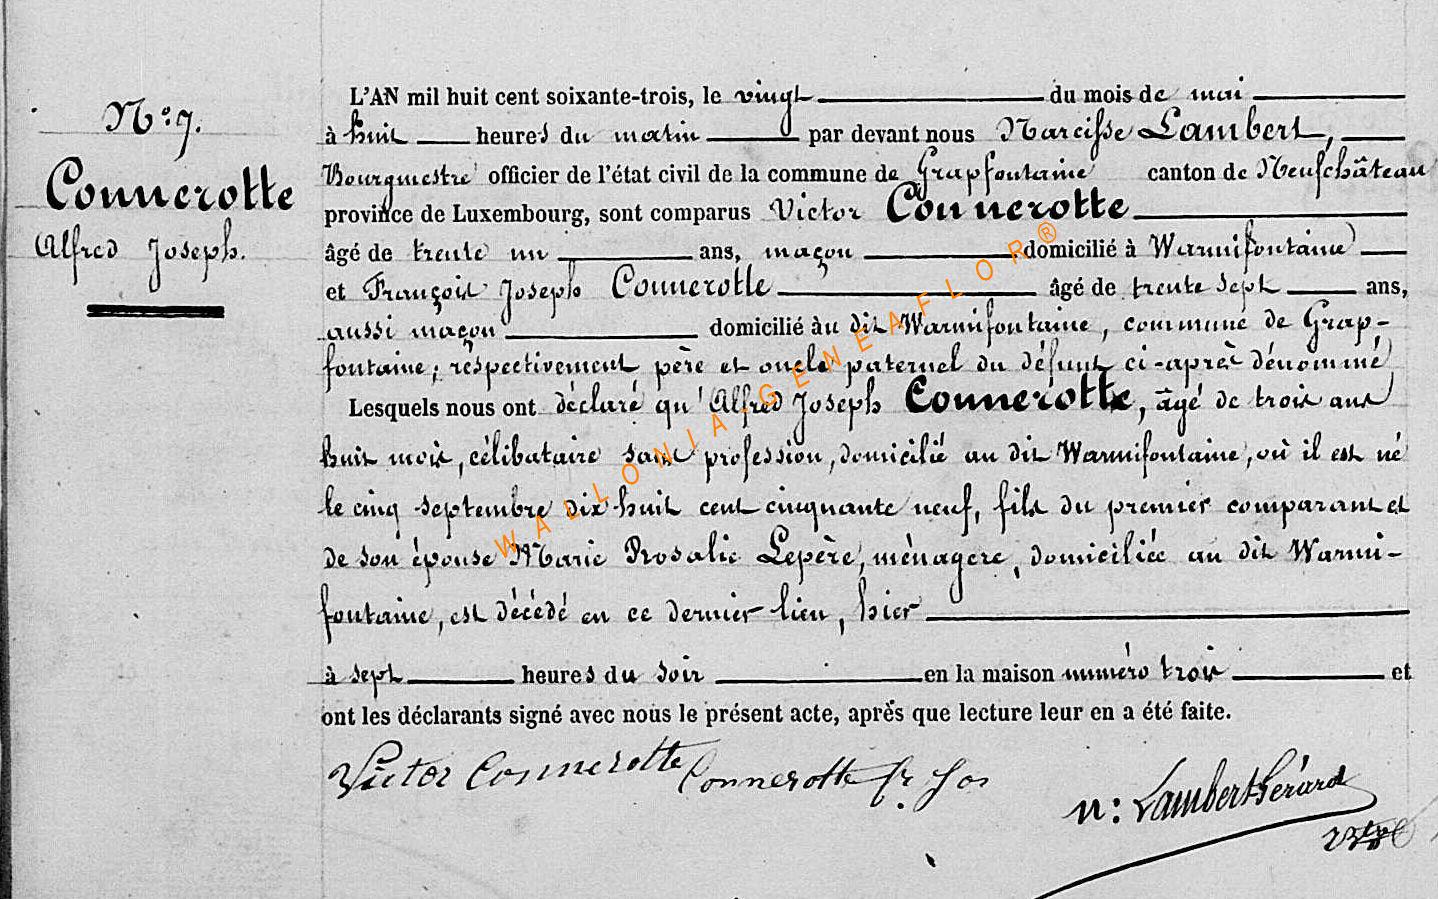 N° 7.
Connerotte
Alfred Joseph.
L'AN mil huit cent soixante-trois, le vingt du mois de mai
à huit heures du matin par devant nous Narcisse Lambert,
Bourgmestre officier de l'état civil de la commune de Grapfontaine canton de Neufchâteau
province de Luxembourg, sont comparus Victor Connerotte
âgé de trente un ans, maçon domicilié à Warmifontaine
et François Joseph Connerotte âgé de trente sept ans,
aussi maçon domicilié au dit Warmifontaine, commune de Grap-
fontaine; respectivement père et oncle paternel du défunt ci-après dénommé
Lesquels nous ont déclaré qu'Alfred Joseph Connerotte, âgé de trois ans
huit mois, célibataire sans profession, domicilié au dit Warmifontaine, où il est né
le cinq septembre dix huit cent cinquante neuf, fils du premier comparant et
de son épouse Marie Rosalie Lepère, ménagère, domiciliée au dit Warmi-
fontaine, est décédé en ce dernier lieu, hier
à sept heures du soir en la maison numéro trois et
ont les déclarants signé avec nous le présent acte, après que lecture leur en a été faite.
Victor Connerotte Connerotte fr. Jos
N: Lambert Gérard
WALLONIA-GENEAFLOR®